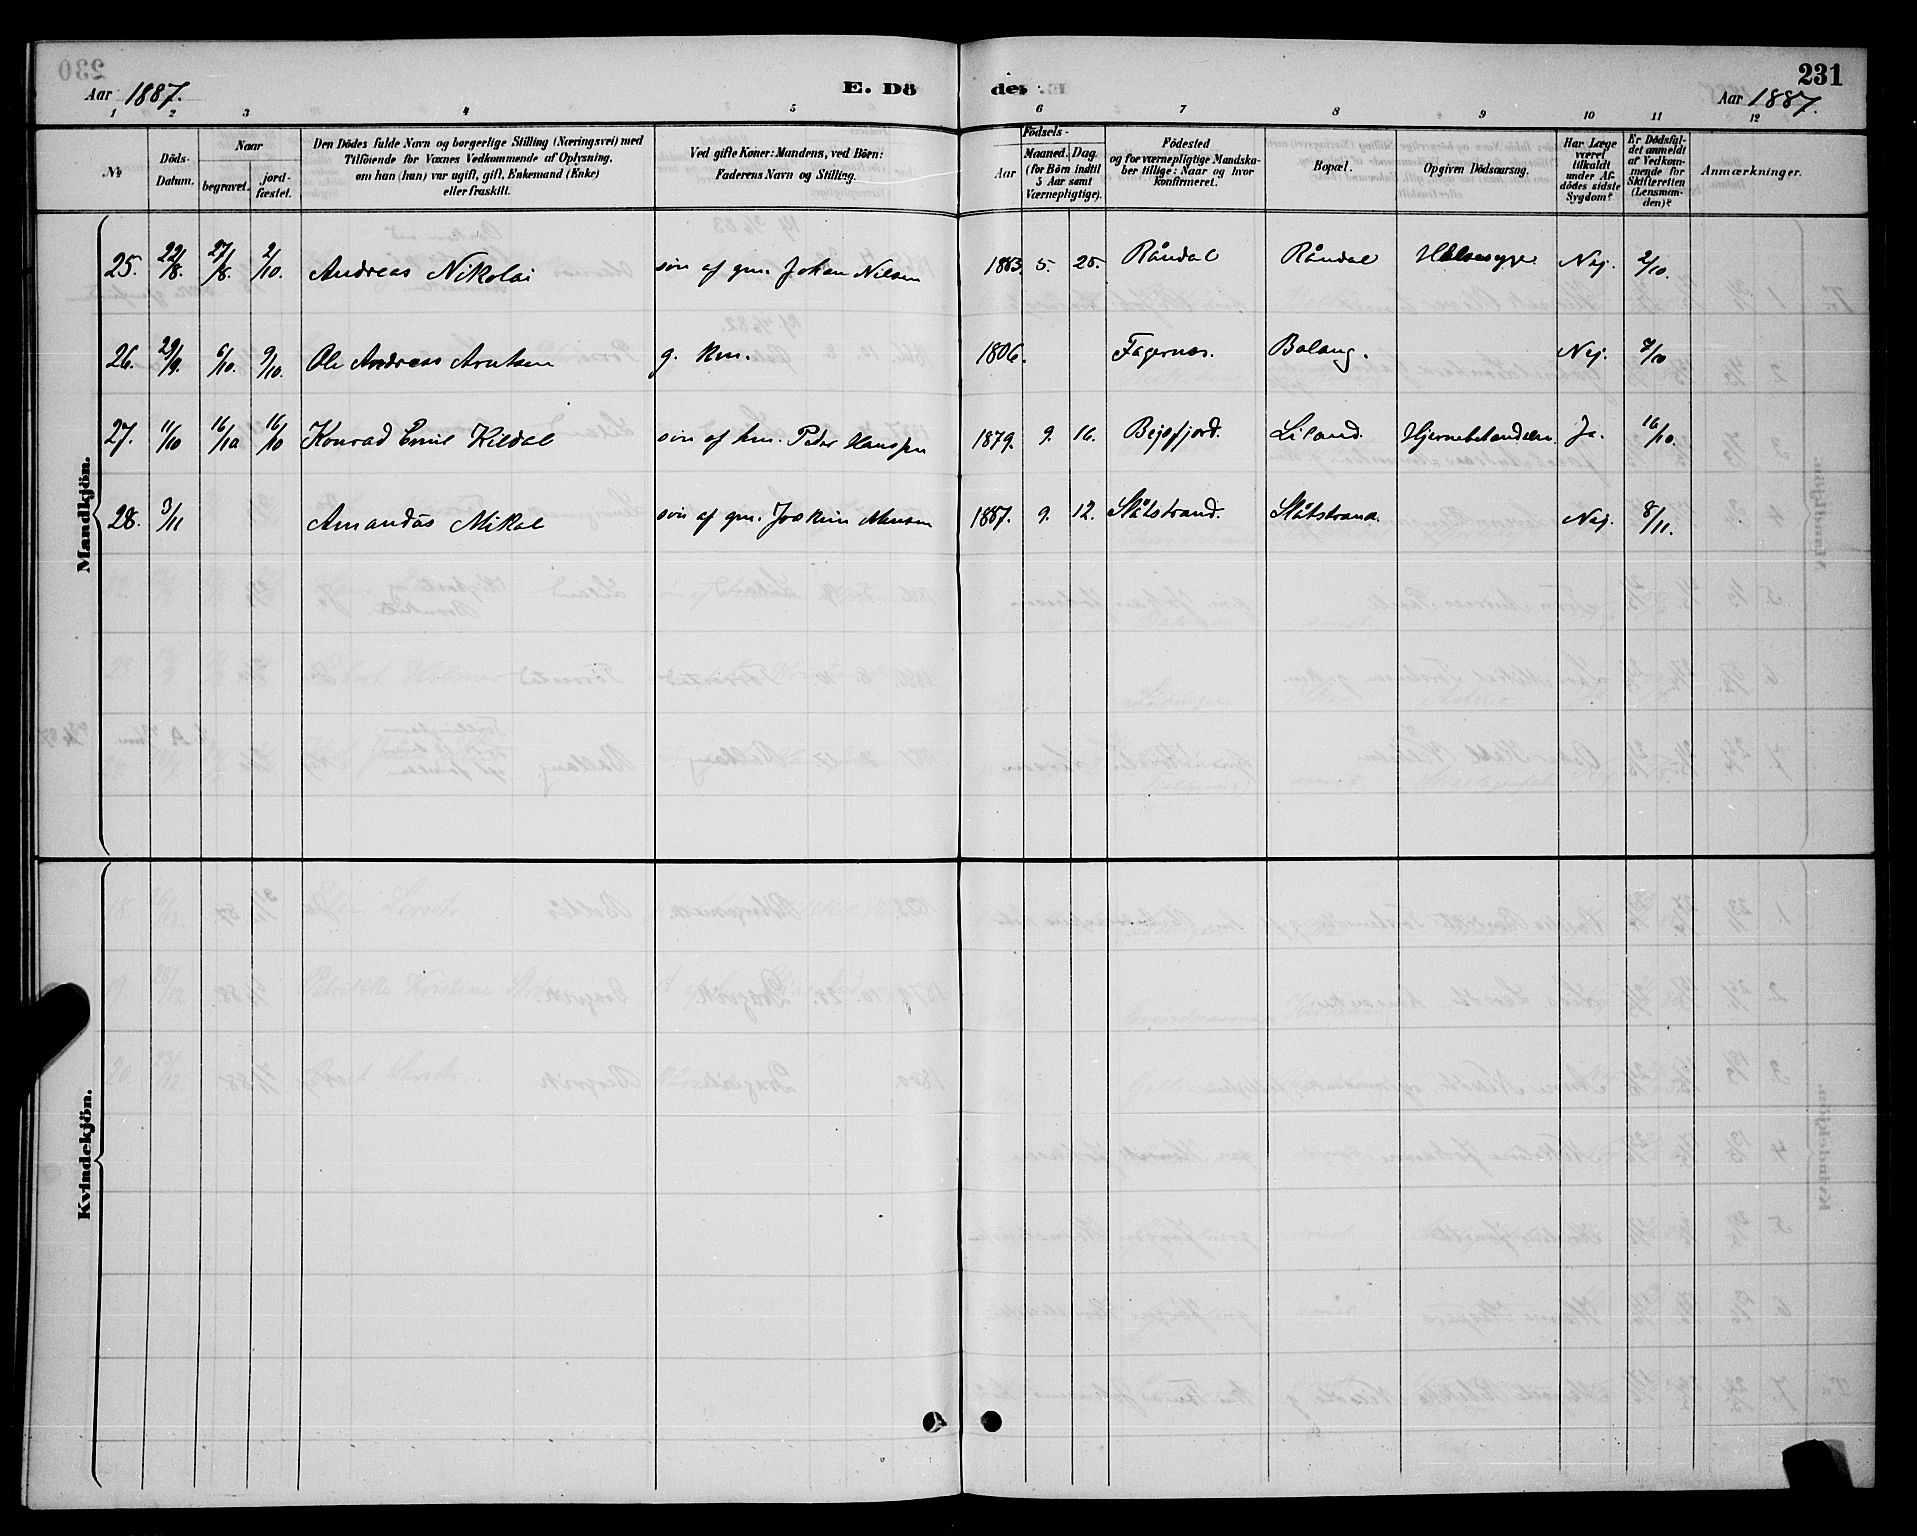 230
231
Aar 1887.
E. Dö
der
Aar 1887.
1 2 3 4 5 6 7 8 9 10 11 12
No
Döds-
Datum.
Naar
begravet.
jord-
fæstet.
Den Dödes fulde Navn og borgerlige Stilling (Næringsvei) med
Tilföiende for Voxnes Vedkommende af Oplysning,
om han (hun) var ugift, gift, Enkemand (Enke)
eller fraskilt.
Ved gifte Koner: Mandens, ved Börn:
Faderens Navn og Stilling.
Födsels-
Aar
Maaned. Dag.
(for Börn indtil
5 Aar samt
Værnepligtige).
Födested
og for værnepligtige Mandska-
ber tillige: Naar og hvor
konfirmeret.
Bopæl.
Opgiven Dödsaarsag.
Har Læge
været
tilkaldt
under Af-
dödes sidste
Sygdom?
Er Dödsfal-
det anmeldt
af Vedkom-
mende for
Skifteretten
(Lensman-
den)?
Anmærkninger.
Mandkjön.
25. 22/8. 27/8. 2/10. Andreas Nikolai søn af gm. Johan Nilsen 1883. 5. 25. Råndal Råndal Halssyge Nej. 2/10.
26. 29/9. 6/10. 9/10. Ole Andreas Arntsen g. km. 1806. Fagernes. Balang. Nej. 7/10
27. 11/10 16/10 16/10 Konrad Emil Kildal søn af hm. Peter Hanssen 1879. 9. 16. Bejsfjord. Liland. Hjernebetændelse. Ja. 16/10.
28. 3/11 Amandus Mikal søn af gm. Joakim 1887. 9. 12. Slåtstrand. Slåtstrand. Nej. 8/11.
Kvindekjön.